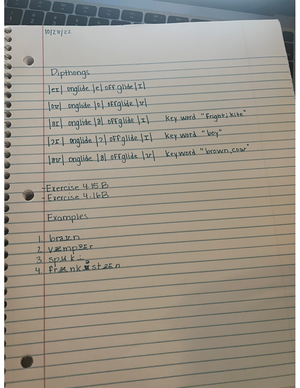 10/24/22
Dipthongs
|eɪ| onglide |e| offglide |ɪ|
|oʊ| onglide |o| offglide |ʊ|
|aɪ| onglide |a| offglide |ɪ| Key word "Fright, Kite"
|ɔɪ| onglide |ɔ| offglide |ɪ| Key word "boy"
|aʊ| onglide |a| offglide |ʊ| Keyword "brown, cow"
-Exercise 4.15 B
-Exercise 4.16 B
Examples
1
2
3 spuki
4